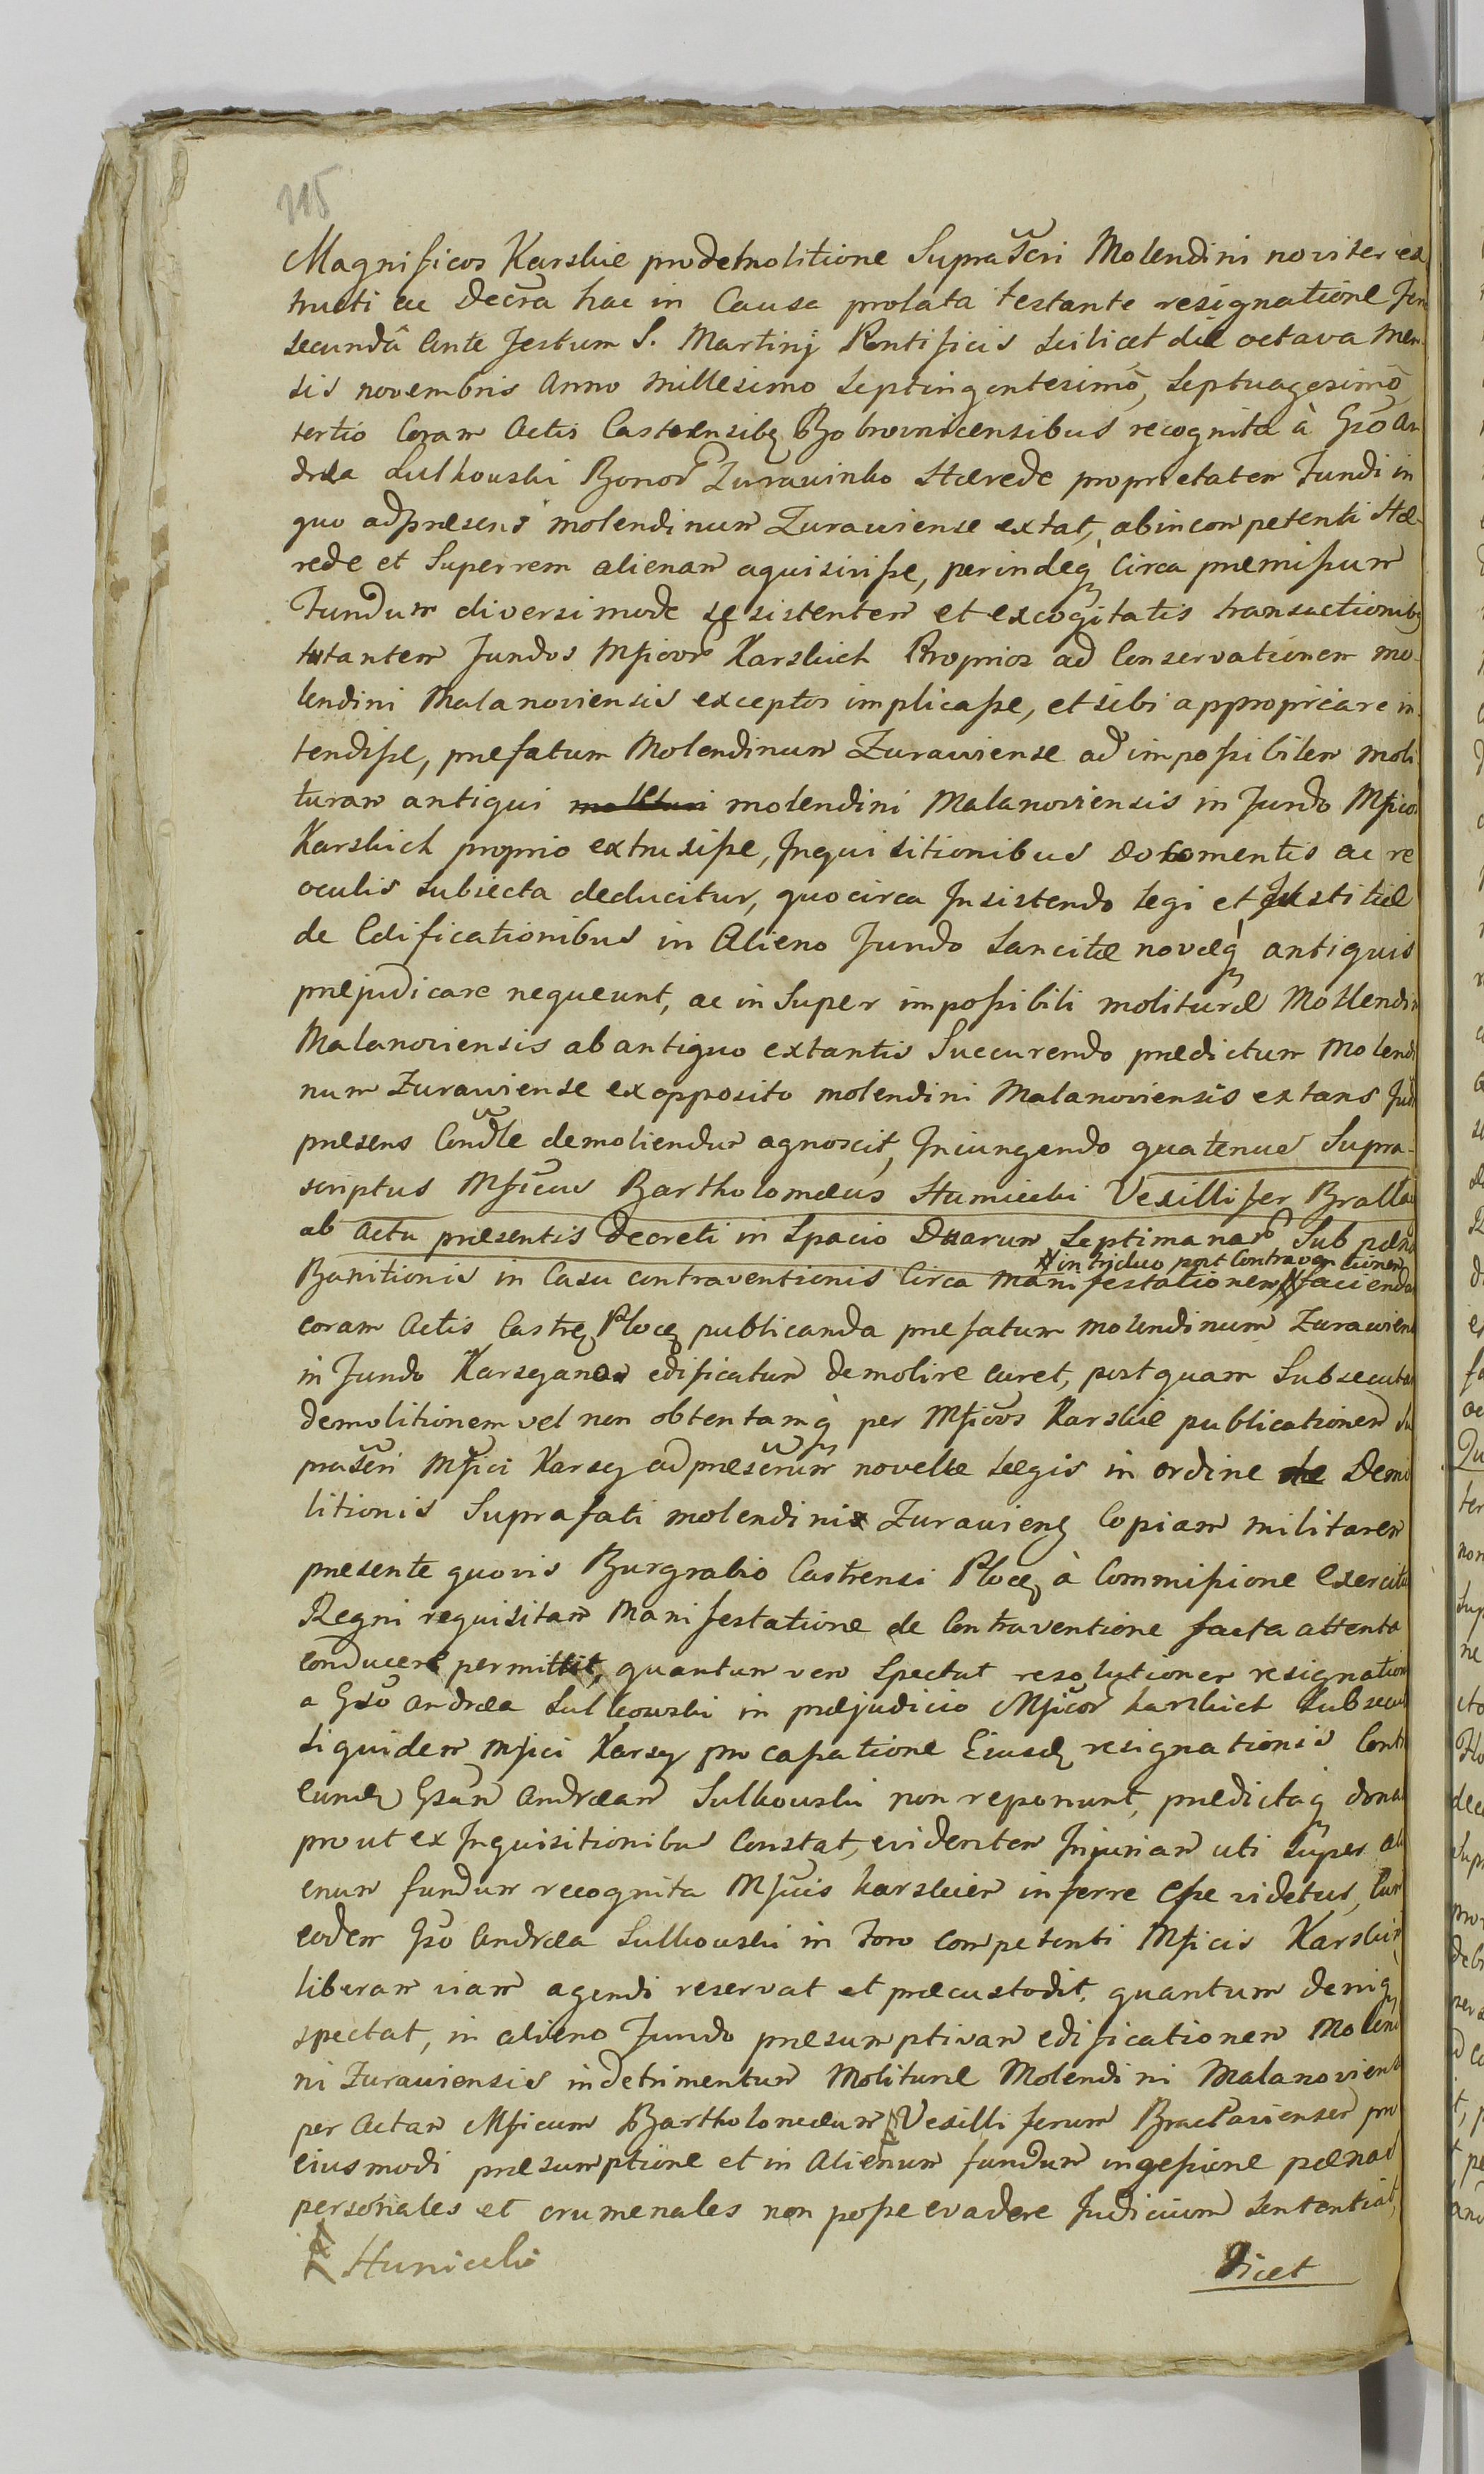 215
Magnificos Karskie pro demolitione Suprascri Molendini noviter ex
tructi ac Decra hac in Causa prolata testante resignatione Fer
secunda Ante Festum S. Martinj Pontificis scilicet die octava Men-
sis novembris Anno millesimo septingentesimo, septuagesimo
tertio Coram Actis Castrensibq Bobrownicensibus recognita à Gso An
drea Sulkowski Bonor Zurawinko Hærede proprietatem Fundi in
quo ad præsens molendinum Zurawiense extat, ab incompetenti Hæ-
rede et Super rem alienam aquisivisse, perindeq Circa præmissum
Fundum diversimode se sistentem et excogitatis transactionibq
tutantem Fundos Mficor Karskich Proprios ad Conservationem mo-
lendini Malanoviensis exceptos implicasse, et sibi appropriare in-
tendisse, præfatum Molendinum Zurawiense ad impossibilem moli
turam antiqui molendini Malanoviensis in Fundo Mficor
Karskich proprio extruxisse, Inquisitionibus Documentis ac re
oculis subiecta deducitur, quocirca Insistendo legi et Justitiæ
de Edificationibus in Alieno Fundo sancitæ novæq antiquis
præjudicare nequeunt, ac in Super impossibili molituræ Mollendin
Malanoviensis ab antiquo extantis Succurendo prædictum Molendi
num Zurawiense ex opposito molendini Malanoviensis extans Judi
præsens Condle demoliendum agnoscit, Iniungendo quatenus Supra-
scriptus Mficus Bartholomæus Humiecki Vexillifer Brallav
ab Actu præsentis Decreti in Spacio Duarum Septimanar Sub pæna
Banitionis in Casu contraventionis Circa Manifestationem in triduo post Contraventionem faciendam
coram Actis Castreq Ploceq publicanda præfatum molendinum Zurawiens
in Fundo Karsyano edificatum demolire curet, post quam Subsecutam
demolitionem vel non obtentamq per Mficos Karskie publicationem Su
prascri Mfici Karscy ad præscrium novellæ Legis in ordine Demo
litionis Suprafati molendini Zurawieng Copiam militarem
præsente quovis Burgrabio Castrensi Ploceq à Commissione Exercitus
Regni requisitam Manifestatione de Contraventione facta attenta
conducere permittit, quantum vero Spectat resolutionem resignation
a Gso Andrea Sulkowski in præjudicio Mficor Karskich Subsecut
siquidem Mfici Karscy pro cassatione Eiusdq resignationis Contr
eundq Gsum Andream Sulkowski non reponunt, prædictaq dona
prout ex Inquisitionibus Constat, evidentem Injuriam uti super ali
enum fundum recognita Mficis Karskiem inferre esse videtur, Cum
eodem Gso Andrea Sulkowski in Foro competenti Mficis Karskim
liberam viam agendi reservat et præcustodit, quantum deniq
spectat, in alieno Fundo præsumptivam edificationem Molendi
ni Zurawiensis in detrimentum Molituræ Molendini Malanoviens
per Actam Mficum Bartholomæum Vexilliferum Braclaviensem pro
eiusmodi præsumptione et in Alienum fundum ingessione pænas
personales et crumenales non posse evadere Judicium Sententiat,
Humiecki
Dicet